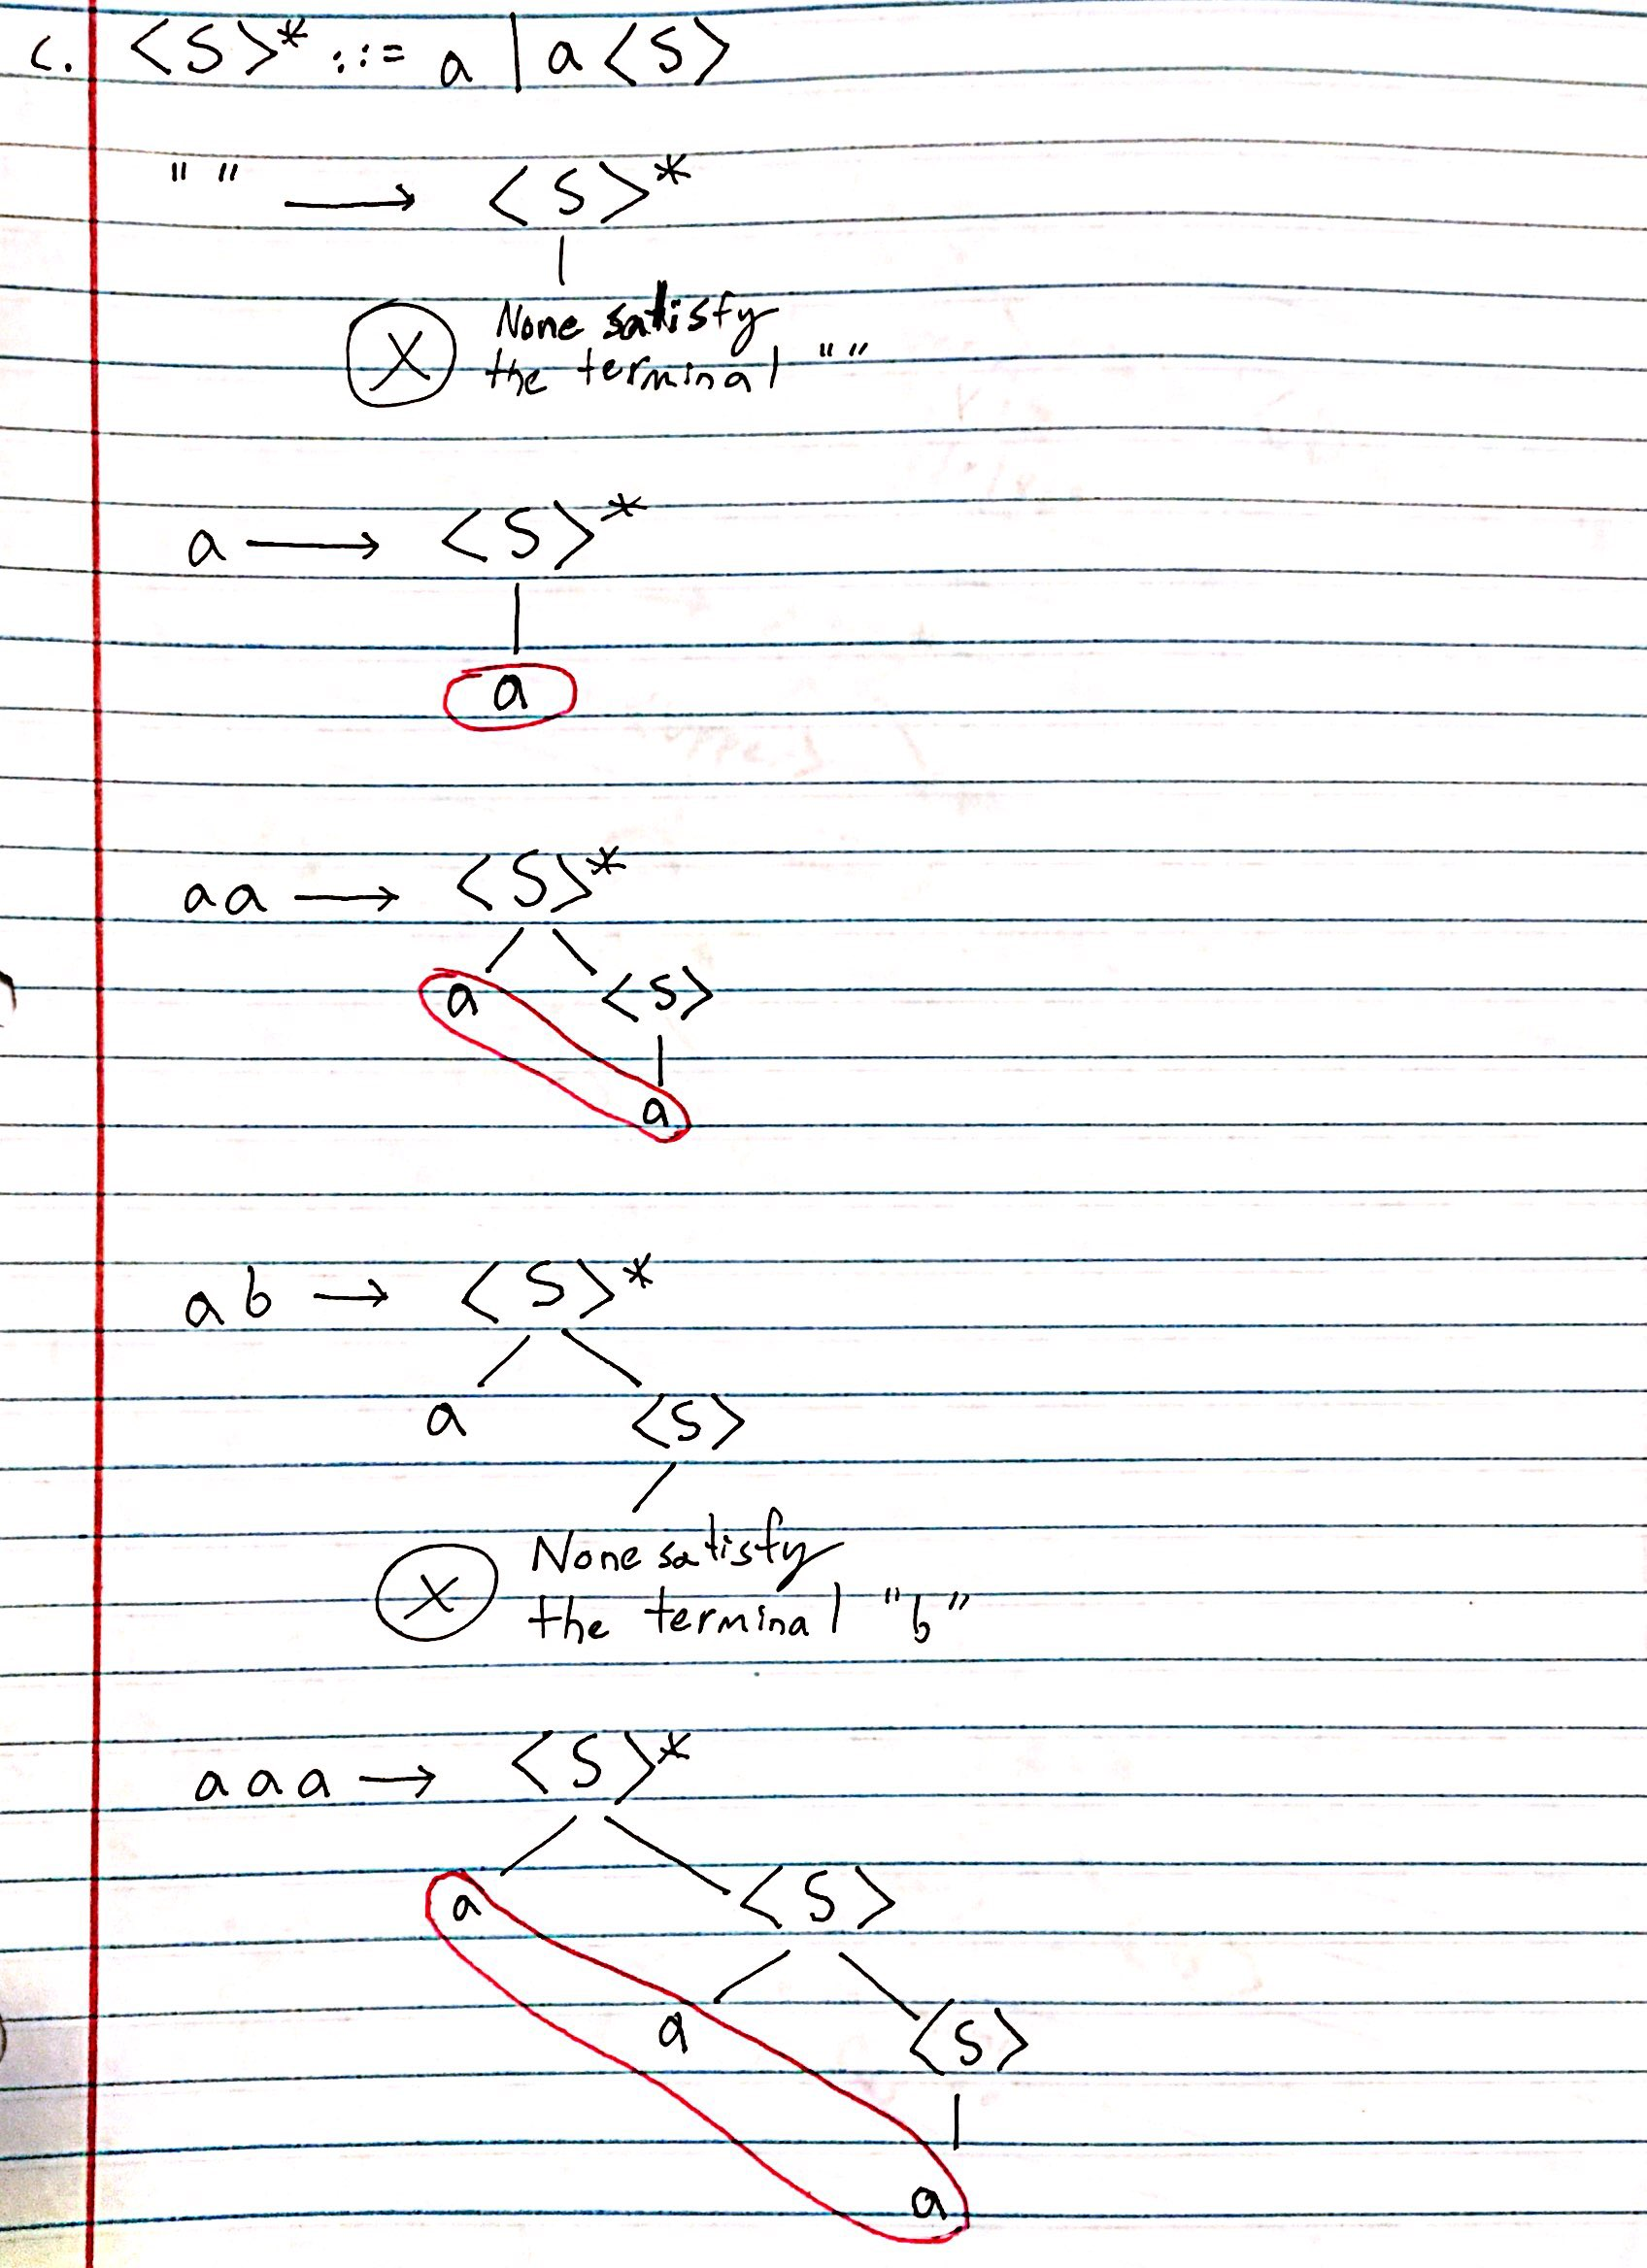 c. <S>* ::= a | a <S>
" " → <S>*
X None satisfy
the terminal ""
a → <S>*
a
aa → <S>*
a <S>
a
ab → <S>*
a <S>
X None satisfy
the terminal "b"
aaa → <S>*
a <S>
a <S>
a